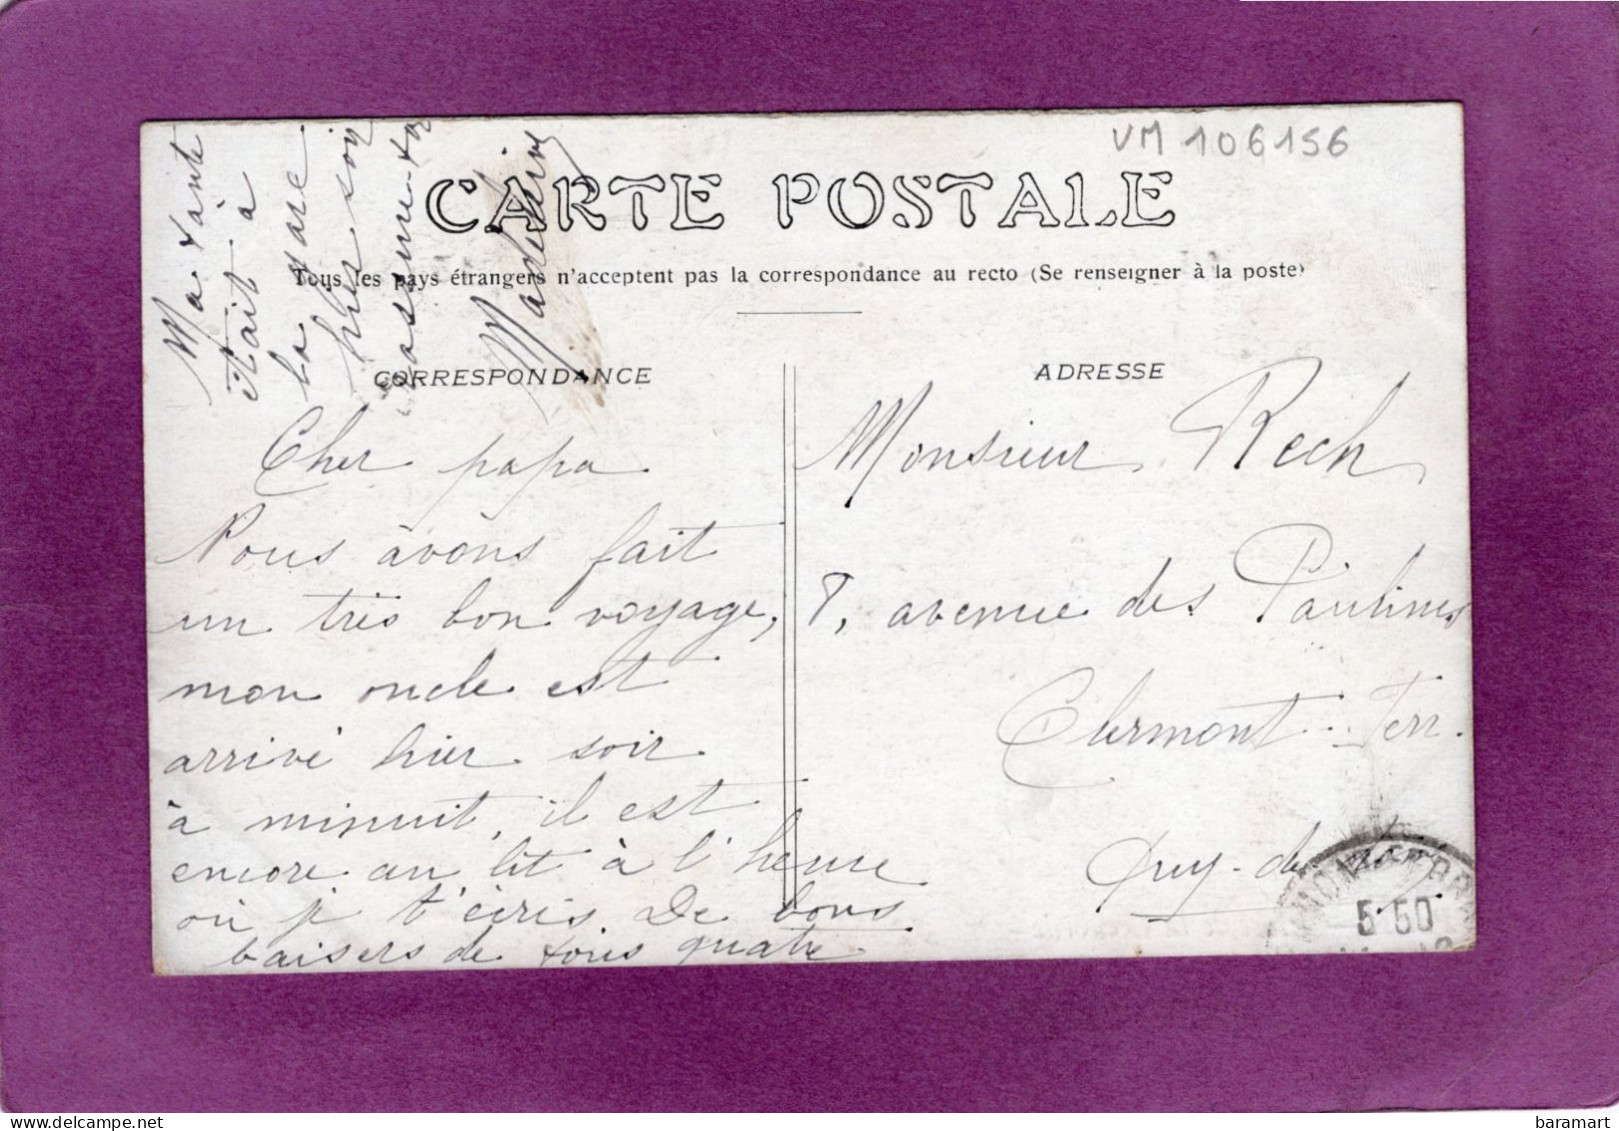 VM 106156
CARTE POSTALE
Tous les pays étrangers n'acceptent pas la correspondance au recto (Se renseigner à la poste)
CORRESPONDANCE
ADRESSE
Cher papa
Nous avons fait
un très bon voyage,
mon oncle est
arrivé hier soir
à minuit, il est
encore au lit à l'heure
où je t'écris De bons
baisers de tous quatre
Ma tante
était à
la gare
hier soir
Madeleine
Monsieur Rech
8, avenue des Paulines
Clermont-Ferr.
Puy-de
5 50
baramart